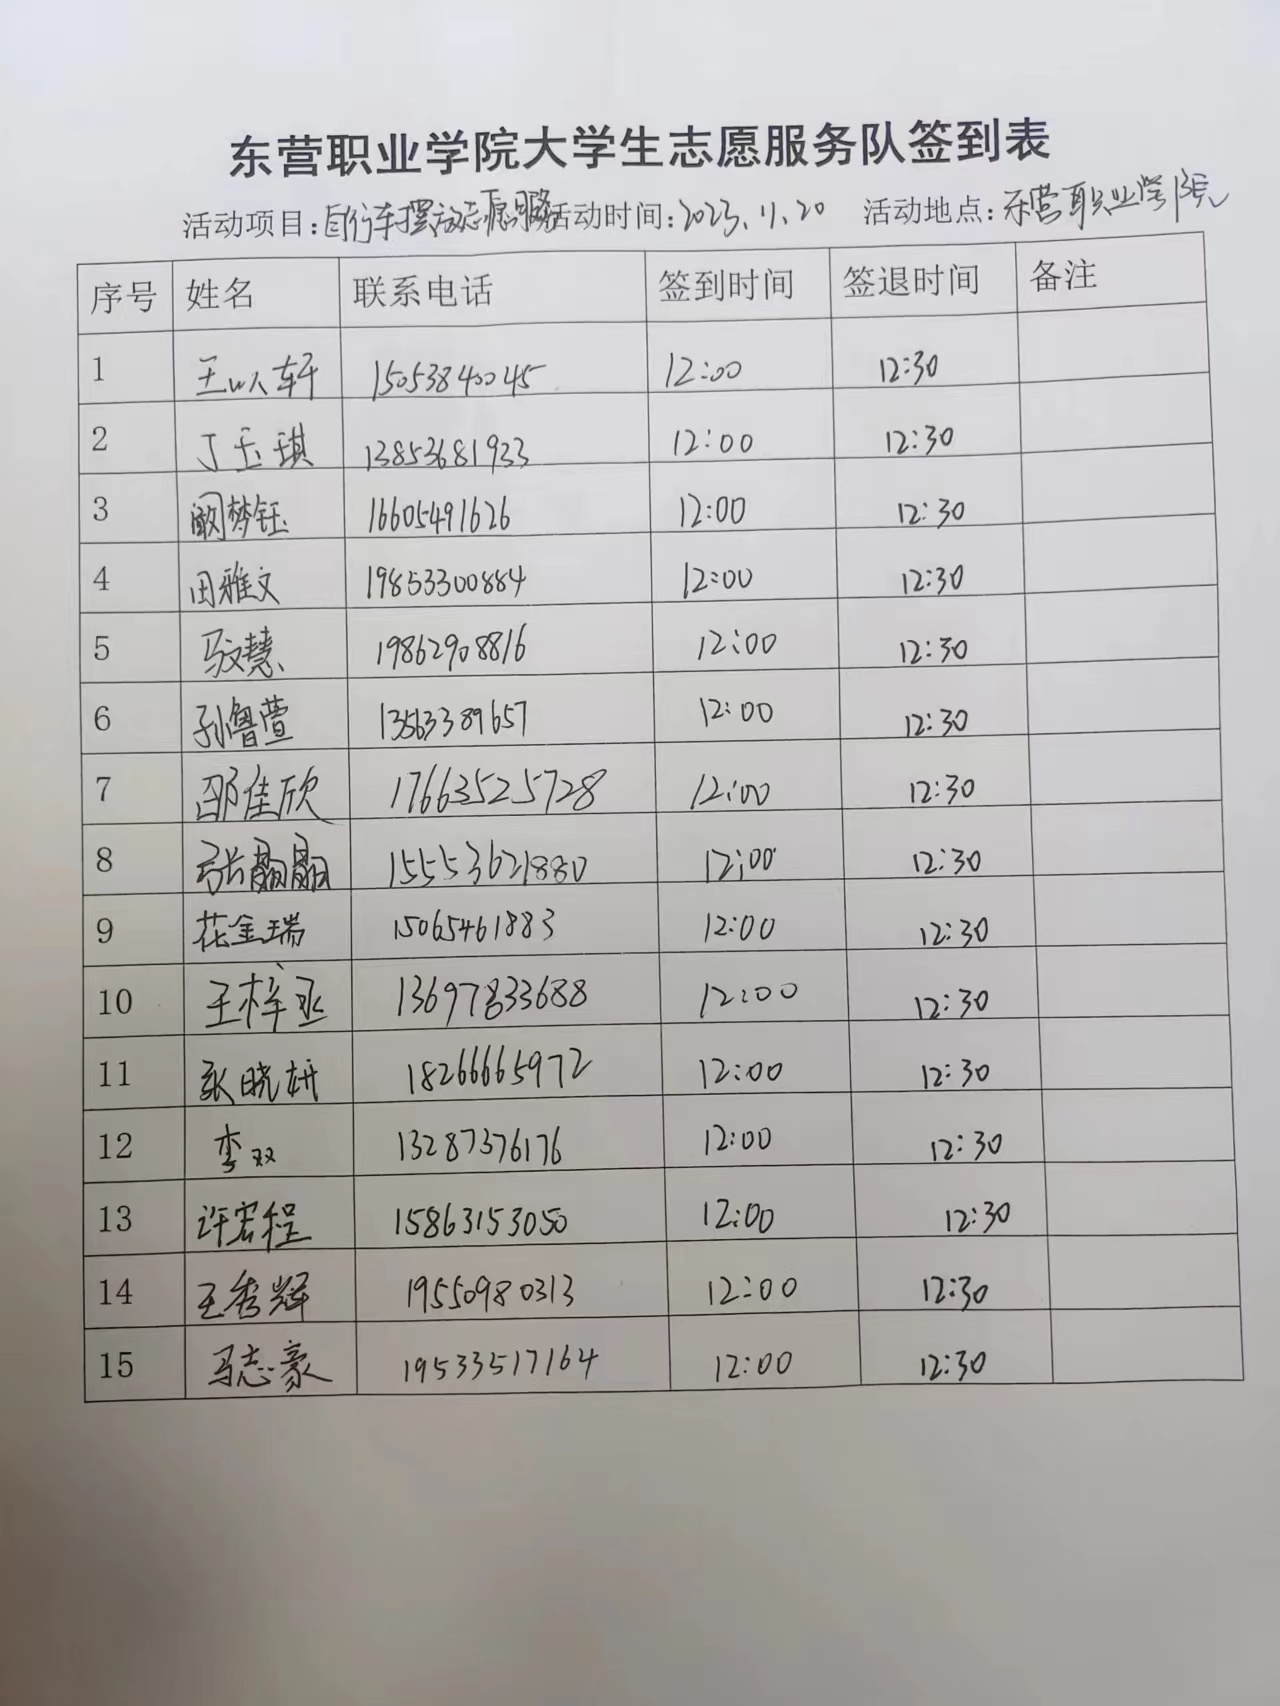 东营职业学院大学生志愿服务队签到表
活动项目:自行车摆放志愿服务活动时间:2023.11.20 活动地点:东营职业学院
序号 姓名 联系电话 签到时间 签退时间 备注
1 王以轩 15053840045 12:00 12:30
2 丁玉琪 13853681933 12:00 12:30
3 阚梦钰 16605491626 12:00 12:30
4 田雅文 19853300884 12:00 12:30
5 马文慧 19862908816 12:00 12:30
6 孙鲁萱 13563389657 12:00 12:30
7 邵佳欣 17663525728 12:00 12:30
8 张翩翩 15553621880 12:00 12:30
9 花金瑞 15065461883 12:00 12:30
10 王梓丞 13697833688 12:00 12:30
11 张晓妍 18266665972 12:00 12:30
12 李双 13287376176 12:00 12:30
13 许宏程 15863153050 12:00 12:30
14 王秀辉 19550980313 12:00 12:30
15 马志豪 19533517164 12:00 12:30